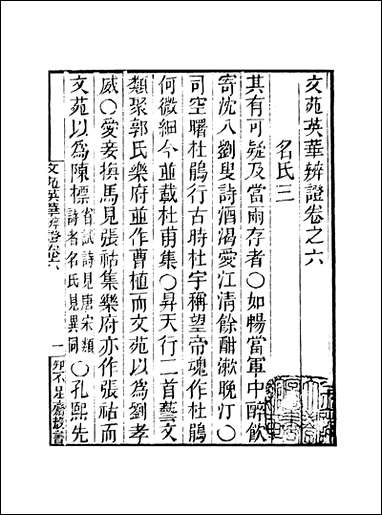 文苑英華辨證卷之六
名氏三
其有可疑及當兩存者〇如暢當軍中醉飲
寄沈八劉叟詩酒渴愛江清餘酣漱晚汀〇
司空曙杜鵑行古時杜宇稱望帝魂作杜鵑
何微細今並載杜甫集〇昇天行二首藝文
類聚郭氏樂府並作曹植而文苑以為劉孝
威〇愛妾換馬見張祜集樂府亦作張祜而
文苑以爲陳標省試詩見唐宋類詩者名氏見異同〇孔熙先
文苑英華辨證卷六
一
知不足齋叢書